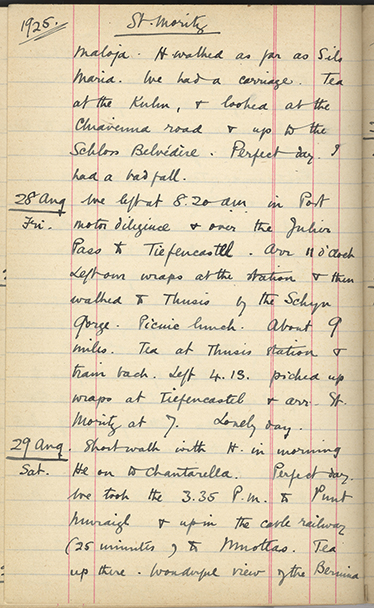 1925. St. Moritz
Maloja. H walked as far as Sils
Maria. We had a carriage. Tea
at the Kulm, & looked at the
Chiavenna road & up to the
Schloss Belvédère. Perfect day. I
had a bad fall.
28 Aug We left at 8.20 am in Post
Fri. motor diligence & over the Julier
Pass to Tiefencastell. Arr 11 o'clock
Left our wraps at the station & then
walked to Thusis by the Schyn
Gorge. Picnic lunch. About 9
miles. Tea at Thusis station &
train back. Left 4.13. picked up
wraps at Tiefencastel & arr. St.
Moritz at 7. Lovely day.
29 Aug. Short walk with H. in morning
Sat. He on to Chantarella. Perfect day.
We took the 3.35 P.m. to Punt
Muraigh & up in the cable railway
(25 minutes) to Muottas. Tea
up there. Wonderful view of the Bernina